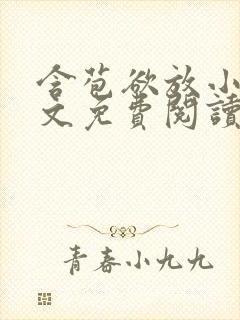 含苞欲放小
文免費閱讀
青春小九九